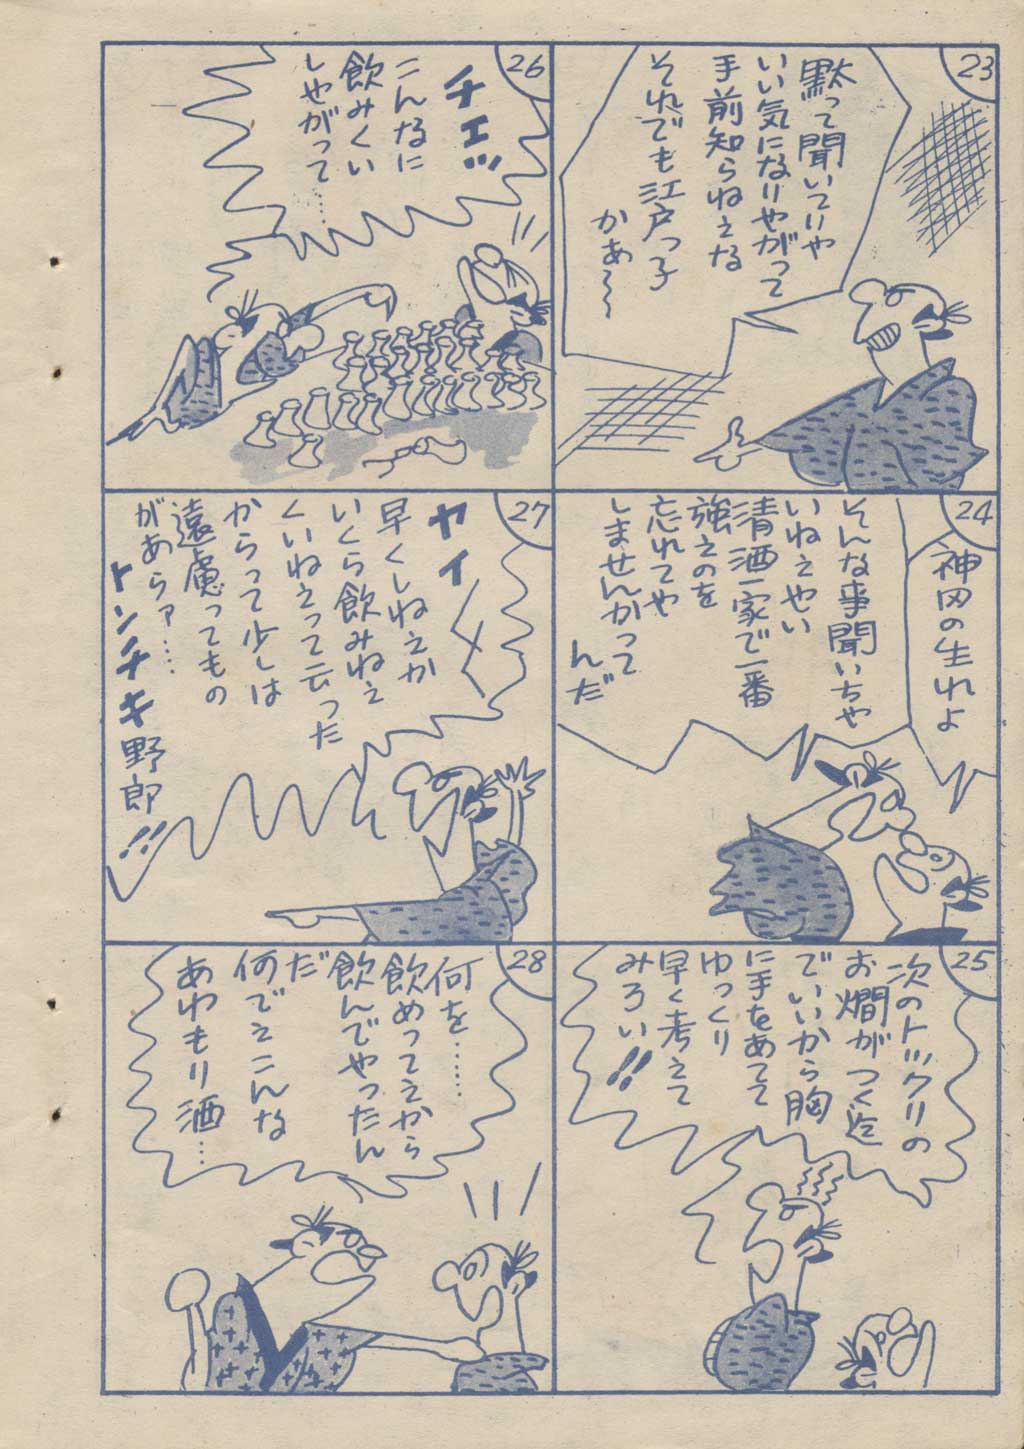 23
黙って聞いてりや
いい気になりやがって
手前知らねえな
それでも江戸っ子
かあ〜〜
24
神田の生れよ
そんな事聞いちゃ
いねえやい
清酒一家で一番
強えのを
忘れてや
しませんかって
んだ
25
次のトックリの
お燗がつく迄
でいいから胸
に手をあてて
ゆっくり
早く考えて
みろい!!
26
チエッ
こんなに
飲みくい
しやがって……
27
ヤイ
早くしねえか
いくら飲みねえ
くいねえって云った
からって少しは
遠慮ってもの
があらァ……
トンチキ野郎!!
28
何を……
飲めってえから
飲んでやったん
だ
何でえこんな
あわもり酒……